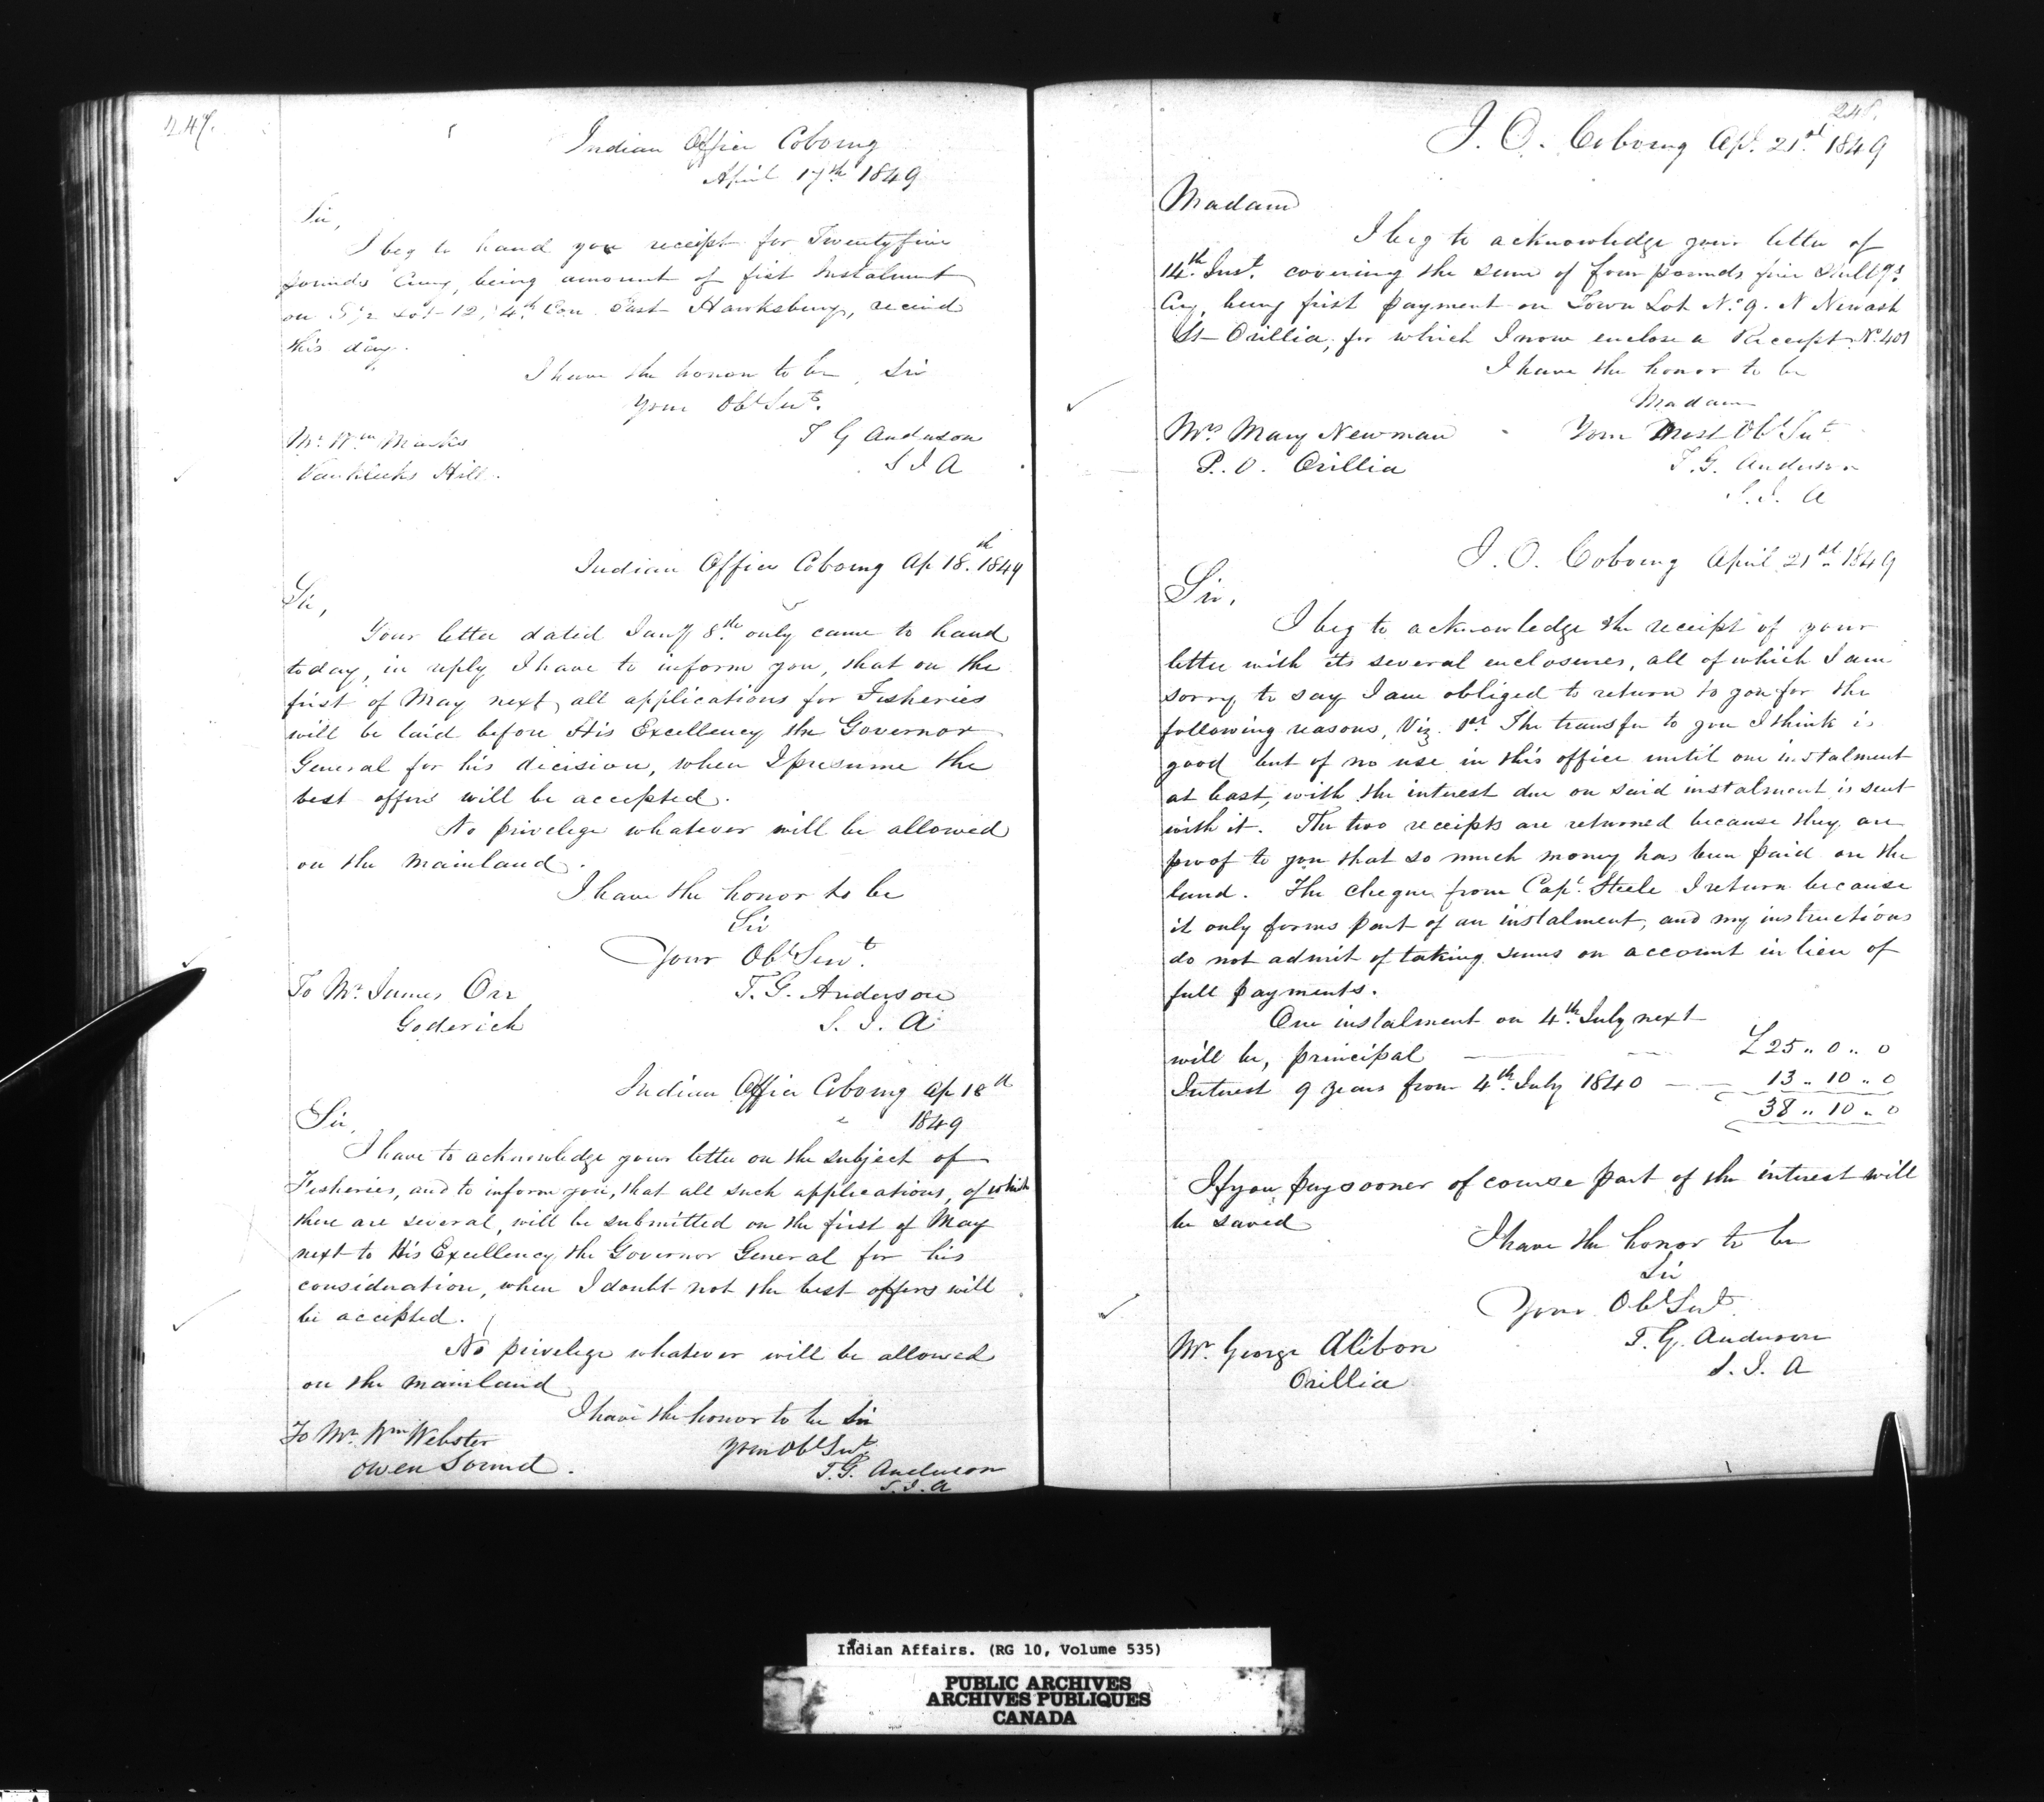 247.
Indian Office Cobourg
April 17th 1849
Sir,
I beg to hand you receipt for Twentyfive
pounds Cury, being amount of first Instalment
on S 1/2 Lot 12, 4th Con. East Hawksbury, received
this day.
I have the honor to be, Sir
Your Obt Servt.
T G Anderson
S I A
Mr. Wm
Vankleeks Hill.
Indian Office Cobourg Ap 18.th 1849
Sir,
Your letter dated Jany 8th. only came to hand
today, in reply I have to inform you, that on the
first of May next, all applications for Fisheries
will be laid before His Excellency the Governor
General for his dicision, when I presume the
best offers will be accepted.
No privelege whatever will be allowed
on the mainland.
I have the honor to be
Sir
Your Obt Servt.
To Mr. James Orr
Goderich
T. G. Anderson
S. I. A
Indian Office Cobourg Ap 18th
1849
Sir,
I have to acknowledge your letter on the subject of
Fisheries, and to inform you, that all such applications, of which
there are several, will be submitted on the first of May
next to His Excellency the Governor General for his
consideration, when I doubt not the best offers will
be accepted.
No privelege whatever will be allowed
on the mainland
I have the honor to be Sir
To Mr. Wm Webster
Owen Sound.
Your Obt Servt.
T. G. Anderson
S. I. A
248.
I. O. Cobourg Ap. 21st. 1849
Madam
I beg to acknowledge your letter of
14th. Inst. covering the sum of four pounds five Shillgs.
Cuy, being first payment on Town Lot No 9. N Newash
St Orillia, for which I now enclose a Receipt No. 401
I have the honor to be
Madam
Mrs Mary Newman
P. O. Orillia
Your Most Obt Sert
T. G. Anderson
S. I. A
I. O. Cobourg April 21st 1849
Sir,
I beg to acknowledge the receipt of your
letter with its several enclosures, all of which I am
sorry to say I am obliged to return to you for the
following reasons, Viz. 1st The transfer to you I think is
good but of no use in this office until one instalment
at least, with the interest due on said instalment is sent
with it. The two receipts are returned because they are
proof to you that so much money has been paid on the
land. The cheque from Capt. Steele I return because
it only forms part of an instalment, and my instructions
do not admit of taking sums on account in lieu of
full payments.
One instalment on 4th. July next
will be, principal £25 " 0 " 0
Interest 9 years from 4th. July 1840 13 " 10 " 0
38 " 10 " 0
If you pay sooner of course part of the interest will
be saved
I have the honor to be
Sir
Your Obt Sert
Mr. George Alibon
Orillia
T. G. Anderson
S. I. A
Indian Affairs. (RG 10, Volume 535)
PUBLIC ARCHIVES
ARCHIVES PUBLIQUES
CANADA